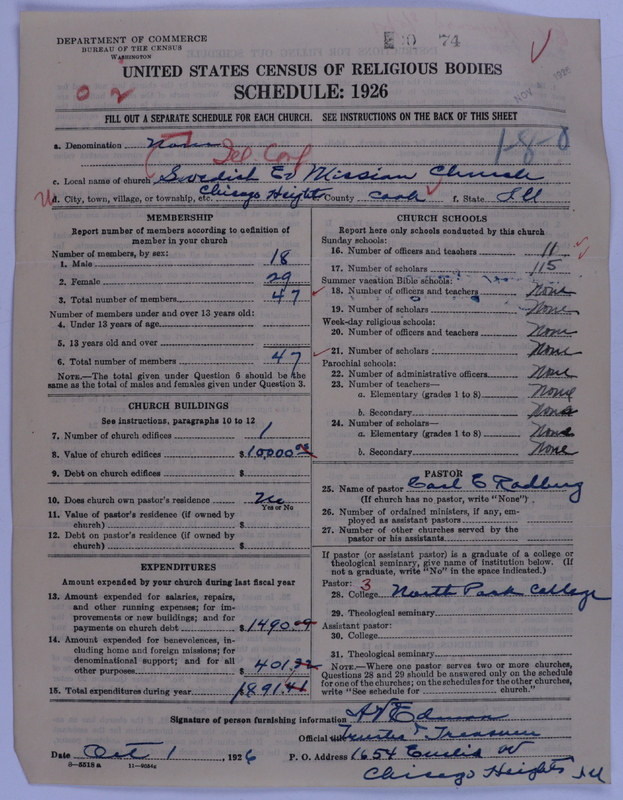 DEPARTMENT OF COMMERCE
BUREAU OF THE CENSUS
WASHINGTON
E 0 74
NOV 1926
UNITED STATES CENSUS OF RELIGIOUS BODIES
SCHEDULE: 1926
FILL OUT A SEPARATE SCHEDULE FOR EACH CHURCH. SEE INSTRUCTIONS ON THE BACK OF THIS SHEET
1-8-0
a. Denomination None
c. Local name of church Swedish Ev Mission Church
d. City, town, village, or township, etc. Chicago Heights County Cook f. State Ill
MEMBERSHIP
Report number of members according to definition of
member in your church
Number of members, by sex:
1. Male 18
2. Female 29
3. Total number of members 47
Number of members under and over 13 years old:
4. Under 13 years of age
5. 13 years old and over
6. Total number of members 47
NOTE.—The total given under Question 6 should be the
same as the total of males and females given under Question 3.
CHURCH BUILDINGS
See instructions, paragraphs 10 to 12
7. Number of church edifices 1
8. Value of church edifices $10000.00
9. Debt on church edifices $
10. Does church own pastor's residence No
Yes or No
11. Value of pastor's residence (if owned by
church) $
12. Debt on pastor's residence (if owned by
church) $
EXPENDITURES
Amount expended by your church during last fiscal year
13. Amount expended for salaries, repairs,
and other running expenses; for im-
provements or new buildings; and for
payments on church debt $1490.09
14. Amount expended for benevolences, in-
cluding home and foreign missions; for
denominational support; and for all
other purposes $401.32
15. Total expenditures during year 1891.41
CHURCH SCHOOLS
Report here only schools conducted by this church
Sunday schools:
16. Number of officers and teachers 11
17. Number of scholars 115
Summer vacation Bible schools:
18. Number of officers and teachers None
19. Number of scholars None
Week-day religious schools:
20. Number of officers and teachers None
21. Number of scholars None
Parochial schools:
22. Number of administrative officers None
23. Number of teachers—
a. Elementary (grades 1 to 8) None
b. Secondary None
24. Number of scholars—
a. Elementary (grades 1 to 8) None
b. Secondary None
PASTOR
25. Name of pastor Carl E
(If church has no pastor, write "None")
26. Number of ordained ministers, if any, em-
ployed as assistant pastors
27. Number of other churches served by the
pastor or his assistants
If pastor (or assistant pastor) is a graduate of a college or
theological seminary, give name of institution below. (If
not a graduate, write "No" in the space indicated.)
Pastor: 3
28. College North Park College
29. Theological seminary
Assistant pastor:
30. College
31. Theological seminary
NOTE.—Where one pastor serves two or more churches,
Questions 28 and 29 should be answered only on the schedule
for one of the churches; on the schedules for the other churches,
write "See schedule for church."
Signature of person furnishing information
Official title Trustee & Treasurer
Date Oct 1, 1926 P. O. Address 1654 Euclid
8—5518 a 11—9034g Chicago Heights Ill